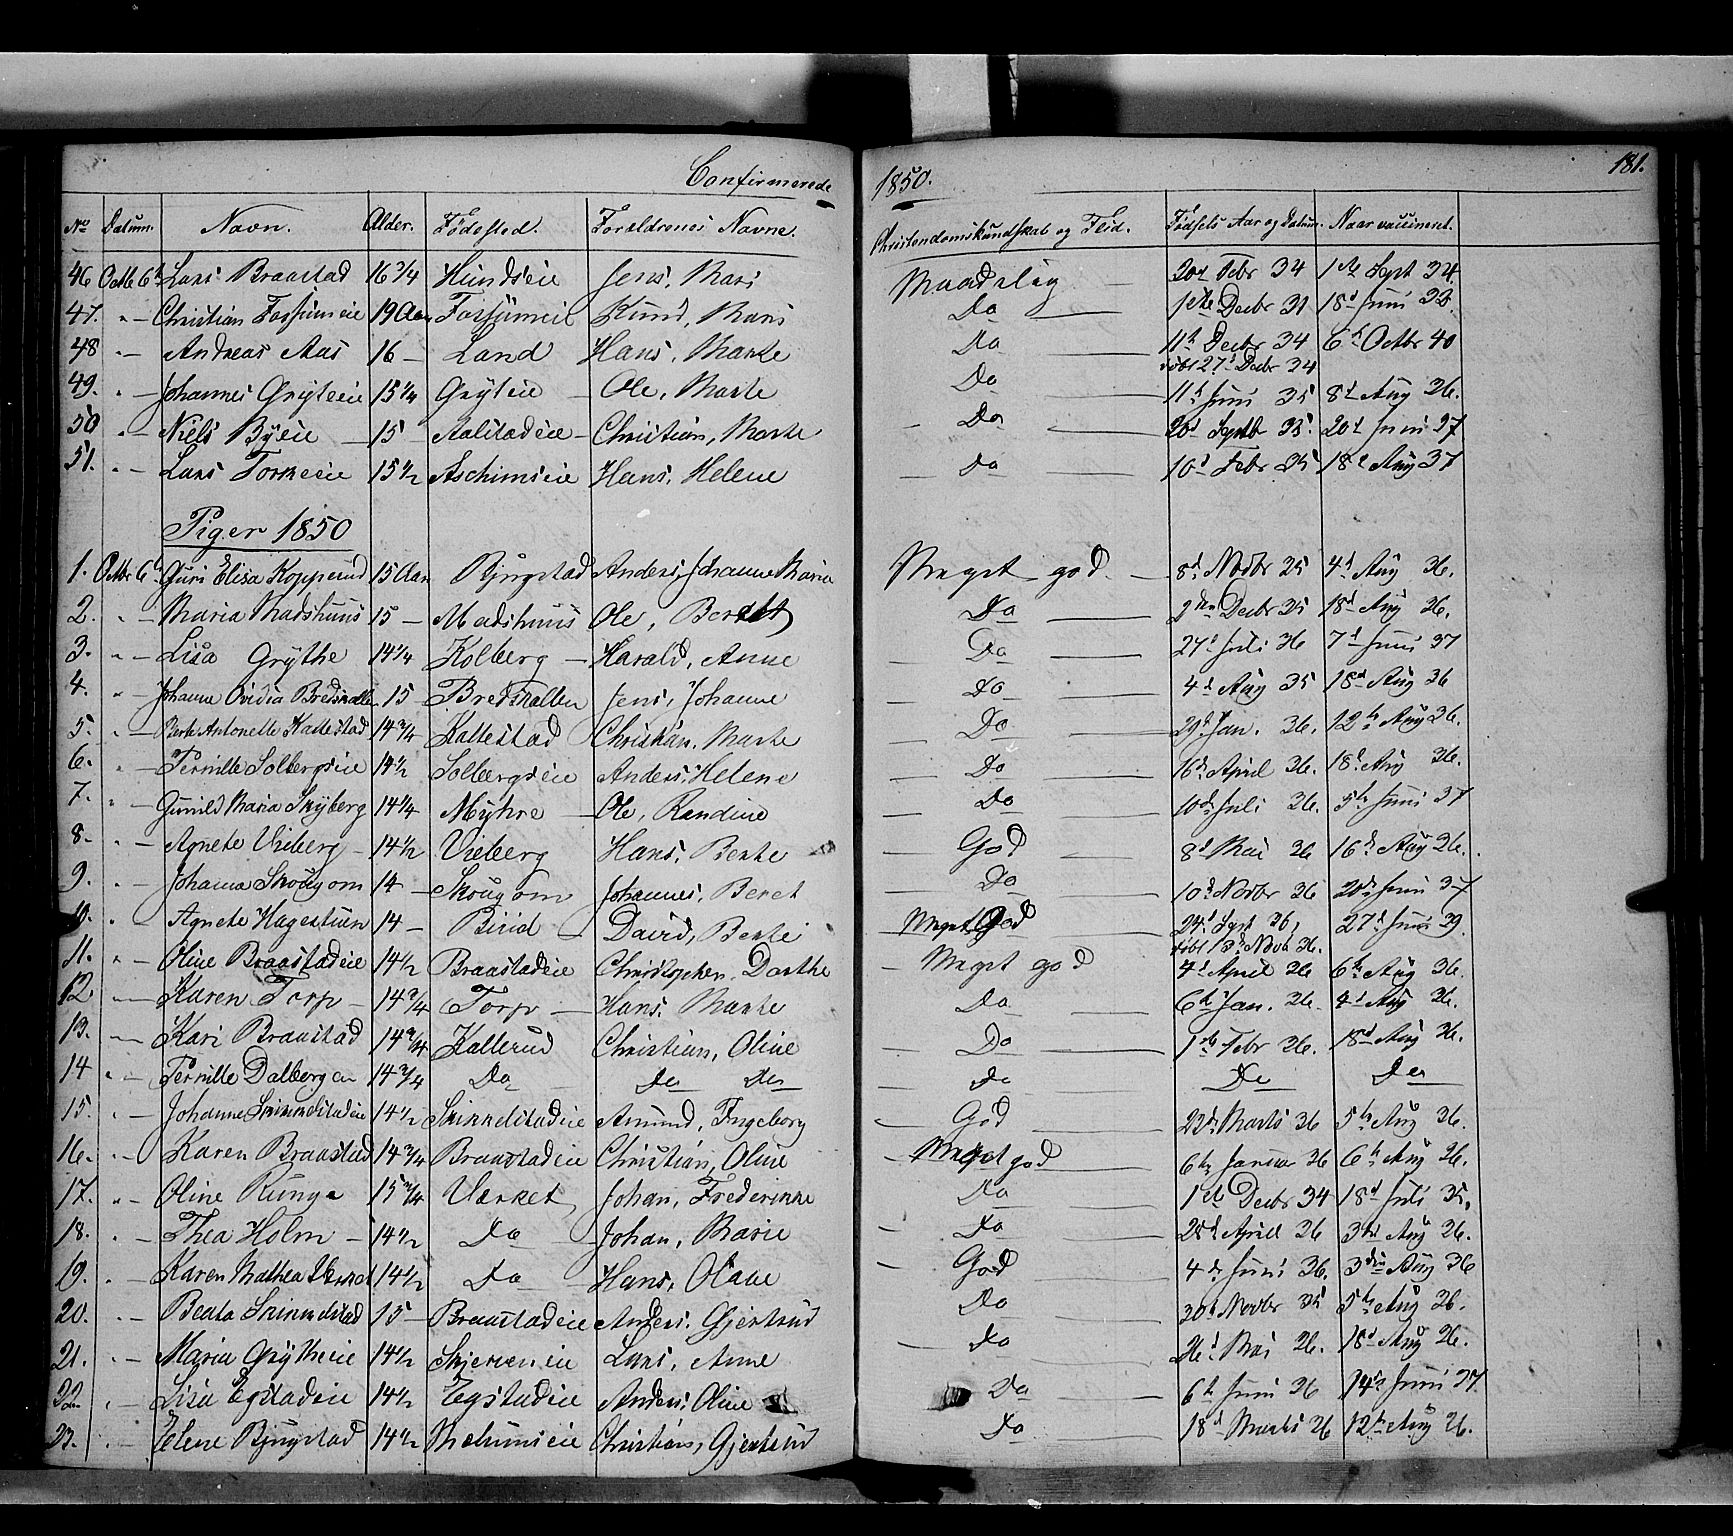 Confirmerede 1850. 181.
No Datum. Navn. Alder. Fødested. Forældrenes Navne. Christendomskundskab og Flid. Fødsels Aar og Datum. Naar vaccineret.
46 Octb 6te Lars Braastad 16 3/4 Hundseie Jens, Mari Maadelig 20d Febr 34 1ste Sept 34.
47. " Christian Fossumeie 19 Aar Fossumeie Knud, Mari Do 1ste Decbr 31 18d Juni 33.
48 " Andreas Aas 16 Land Hans, Marte Do 11te Decbr 34 6te Octbr 40
døbt 27d Decbr 34
49. " Johannes Gryteeie 15 1/4 Gryteie Ole, Marte Do 11te Juni 35 8d Aug 36.
50 " Niels Byeie 15 Aalstadeie Christian, Marte Do 20d Septbr 35. 20d Juni 37
51. " Lars Torkeeie 15 1/2 Aschimseie Hans, Helene Do 10d Febr 35 18d Aug 37
Piger 1850
1. Octbr 6te Guri Elisa Kopperud 15 Aar Bjugstad Anders, Johanne Maria Meget god 8d Novbr 35 4d Aug 36.
2. " Maria Madshuus 15 Madshuus Ole, Berthe Do 2den Decbr 35 18d Aug 36.
3. " Lisa Grythe 14 1/4 Kolberg Harald, Anne Do 27d Juli 36 7d Juni 37
4. " Johanne Ovidia Bredskallen 15 Bredskallen Jens, Johanne Do 4d Aug 35 18d Aug 36
5. " Berte Antonette Kallestad 14 3/4 Kallestad Christian, Marte Do 29d Jan. 36. 12te Aug 36.
6. " Pernille Solbergseie 14 1/2 Solbergseie Anders, Helene Do 16d April 36. 18d Aug 36.
7. " Gunild Maria Skyberg 14 1/4 Myhre Ole, Randine Do 10d Juli 36. 5te Juni 37
8. " Agnete Vieberg 14 1/2 Vieberg Hans, Berte God 8d Mai 36 16d Aug 36.
9. " Johanna Skougom 14 Skougom Johannes, Beret Do 10d Novbr 36 20d Juni 37
10. " Agnete Hagestuen 14 Biird David, Berte Meget God 24d Sept 36, 27d Juni 39.
døbt 13d Novb 36.
11. " Oline Braastadeie 14 1/2 Braastadeie Christopher, Dorthe Meget god 4d April 36 6te Aug 36.
12 Karen Torp 14 3/4 Torp Hans, Marte Do 6te Jan. 36. 4d Aug 36.
13. Kari Braastad 14 3/4 Kallerud Christian, Oline Do 1ste Febr 36. 18d Aug 36.
14 " Pernille Dalbergen 14 3/4 Do Do Do Do Do Do
15. " Johanne Skinkelstadeie 14 1/2 Skinkelstadeie Amund, Ingeborg God 22d Marts 36 5te Aug 36.
16. " Karen Braastad 14 3/4 Braastadeie Christian, Oline Meget god 6te Januar 36 6te Aug 36.
17. " Oline Runge 15 3/4 Værket Johan, Frederikke Do 1ste Decbr 34 18d Juli 35.
18. " Thea Holm 14 1/2 Do Johan, Marie Do 28d April 36 3die Aug 36.
19. " Karen Mathea 14 1/2 Do Hans, Olave God 4de Juni 36. 3die Aug 36
20. " Beata Skinkelstad 15 Braastadeie Anders, Gjertrud Do 30d Novbr 35 5te Aug 36.
21. " Maria Grytheeie 14 1/2 Skjerveneie Lars, Anne Do 26d Mai 36. 18d Aug 36.
22. " Lisa Egstadeie 14 1/2 Egstadeie Anders, Oline Do 6te Juni 36 14de Juni 37.
23. " Helene Bjugstad 14 1/2 Melumseie Christian, Gjertrud Do 18d Marts 36 12te Aug 36.